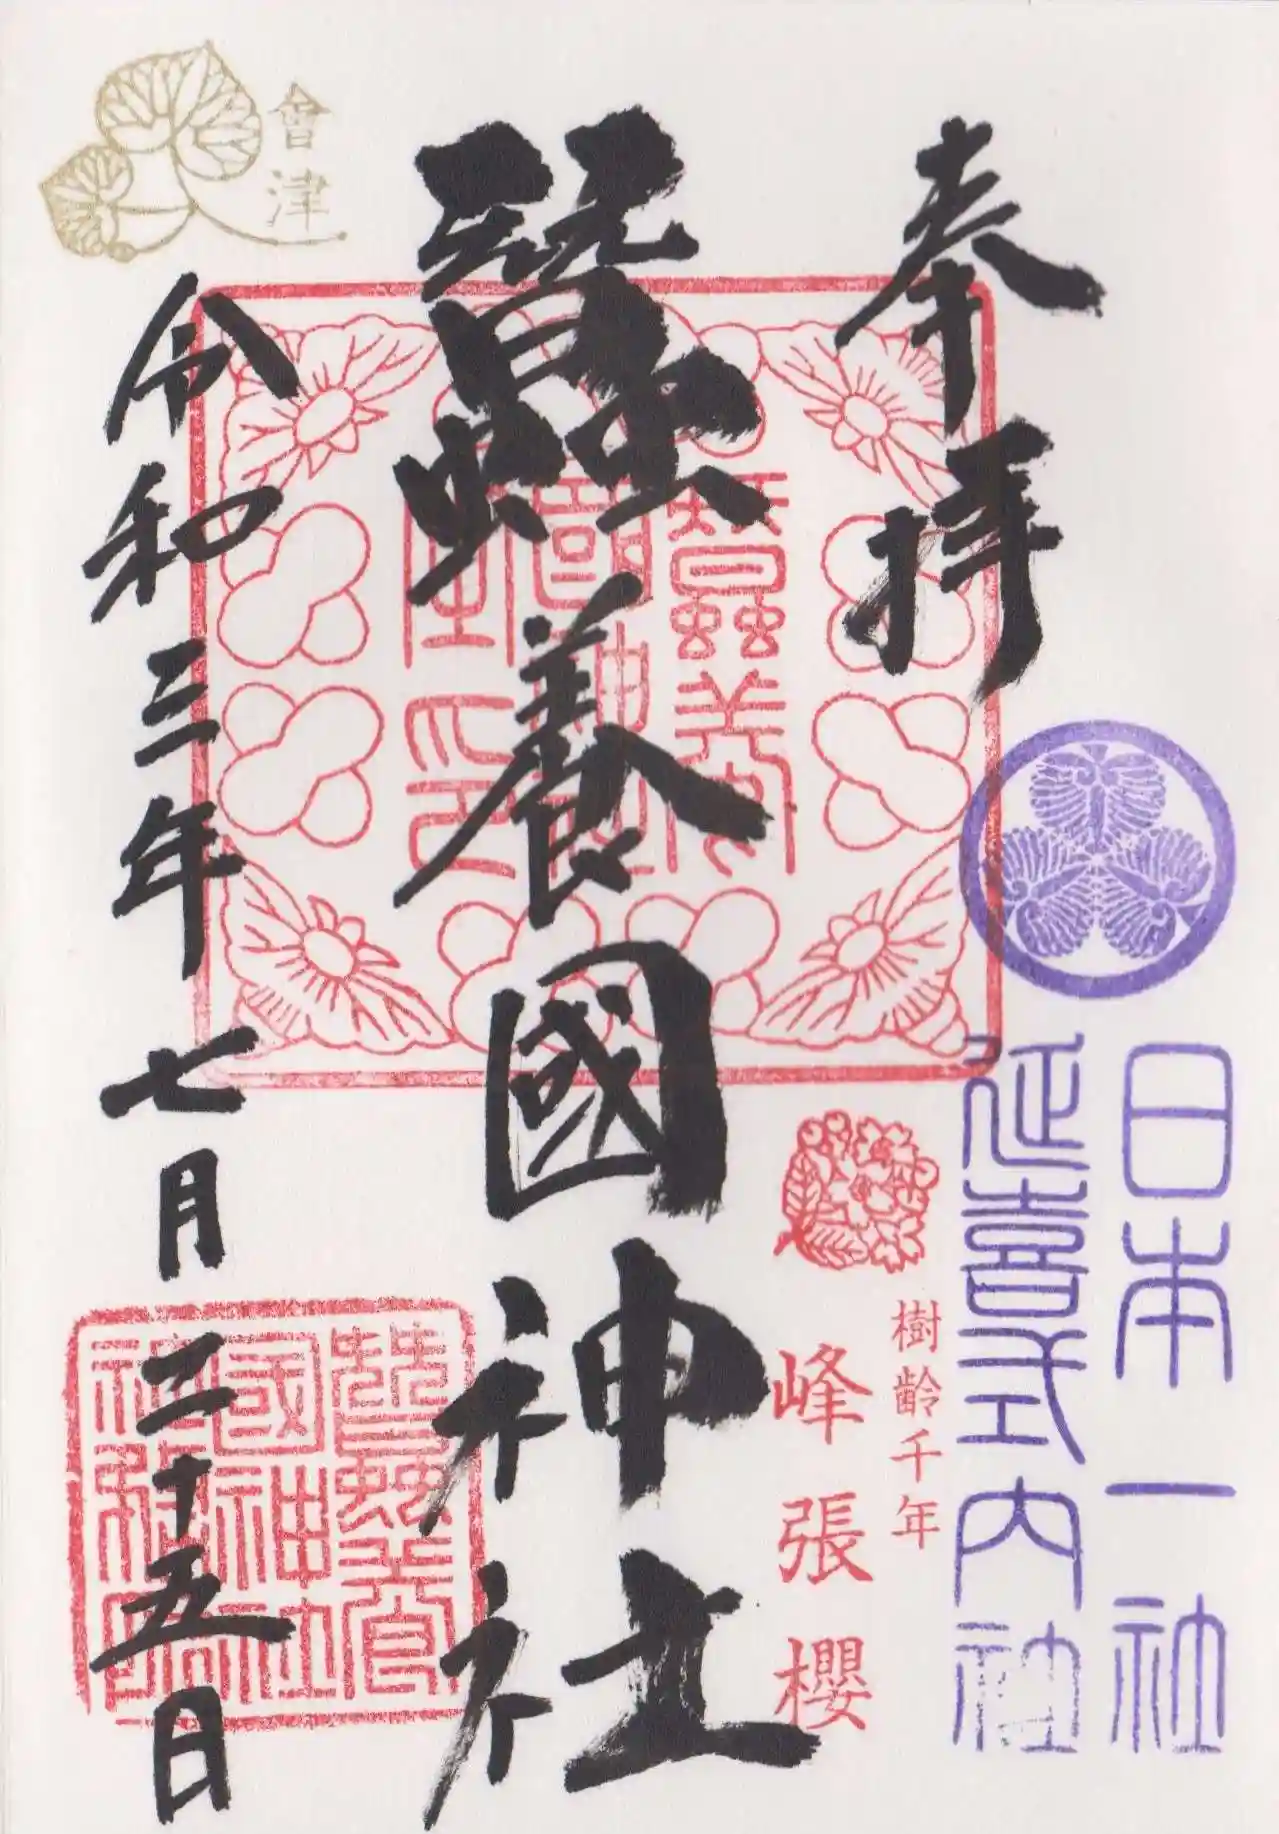 奉拝
日本一社
延喜式内社
樹齢千年
峰張櫻
蠶養國神社
蠶養國神社
會津
令和三年七月二十五日